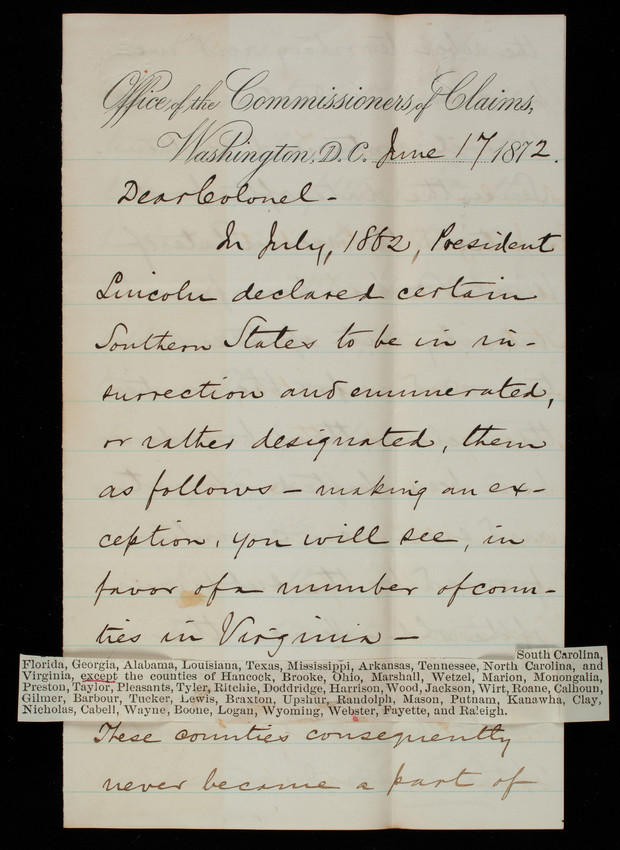 Office of the Commissioners of Claims,
Washington, D.C. June 17 1872.
Dear Colonel -
In July, 1862, President
Lincoln declared certain
Southern States to be in in-
surrection and enumerated,
or rather designated, them
as follows - making an ex-
ception, you will see, in
favor of a number of coun-
ties in Virginia -
South Carolina,
Florida, Georgia, Alabama, Louisiana, Texas, Mississippi, Arkansas, Tennessee, North Carolina, and
Virginia, except the counties of Hancock, Brooke, Ohio, Marshall, Wetzel, Marion, Monongalia,
Preston, Taylor, Pleasants, Tyler, Ritchie, Doddridge, Harrison, Wood, Jackson, Wirt, Roane, Calhoun,
Gilmer, Barbour, Tucker, Lewis, Braxton, Upshur, Randolph, Mason, Putnam, Kanawha, Clay,
Nicholas, Cabell, Wayne, Boone, Logan, Wyoming, Webster, Fayette, and Raleigh.
These counties consequently
never became a part of